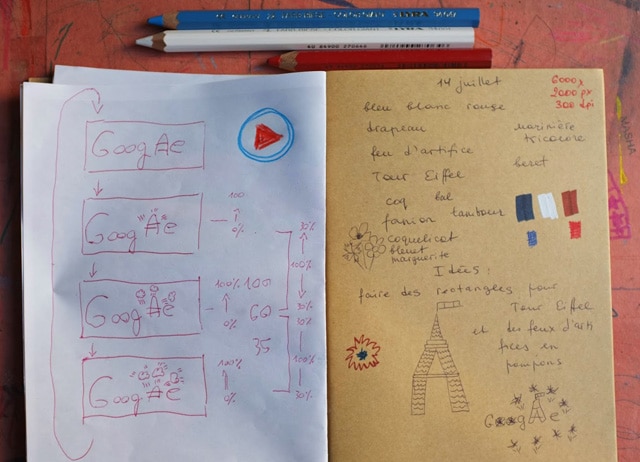 LYRA
LYRA
GoogAe
GoogAe
100
0%
GoogAe
100%
0%
100
60
35
GoogAe
100%
0%
30%
100%
30%
30%
100%
30%
14 juillet
6000 x
2000 px
300 dpi
bleu blanc rouge
drapeau
marinière
tricolore
feu d'artifice
Tour Eiffel
beret
coq bal
fanion tambour
coquelicot
bleuet
marguerite
Idées:
faire des rectangles pour
Tour Eiffel
et des feux d'arti
fices en
pompons
GoogAe